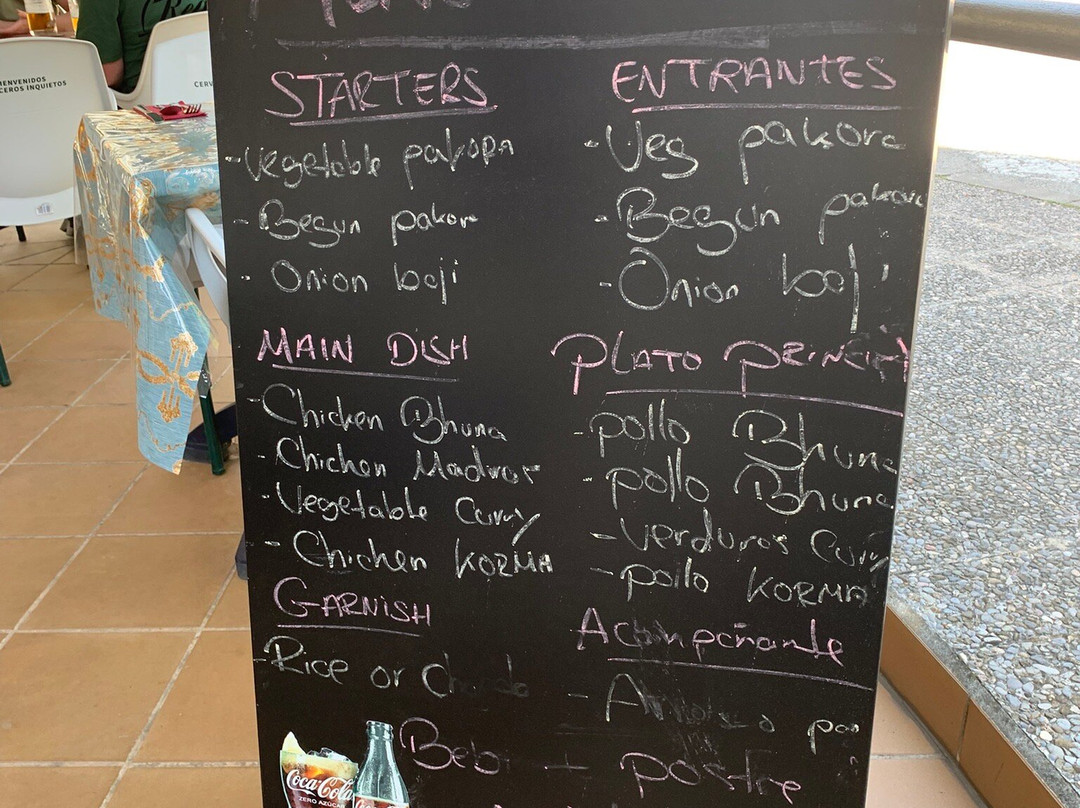 STARTERS
- Vegetable pakora
- Begun pakora
- Onion boji
MAIN DISH
- Chicken Bhuna
- Chicken Madras
- Vegetable Curry
- Chicken KORMA
GARNISH
- Rice or
ENTRANTES
- Veg pakora
- Begun pakora
- Onion boji
PLATO PRINCIP
- pollo Bhuna
- pollo Bhuna
- verduras Curry
- pollo KORMA
Acompañante
- o pan
Bebi + postre
Coca-Cola
ZERO AZÚCAR
ENVENIDOS
CEROS INQUIETOS
CERV